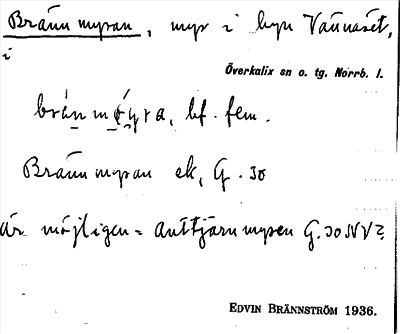 Brännmyran, myr i byn Vännäset,
i
Överkalix sn o. tg. Norrb. l.
bf. fem.
Brännmyran ek, G. 30
är möjligen = Anttjärnmyren G. 30 NV?
EDVIN BRÄNNSTRÖM 1936.